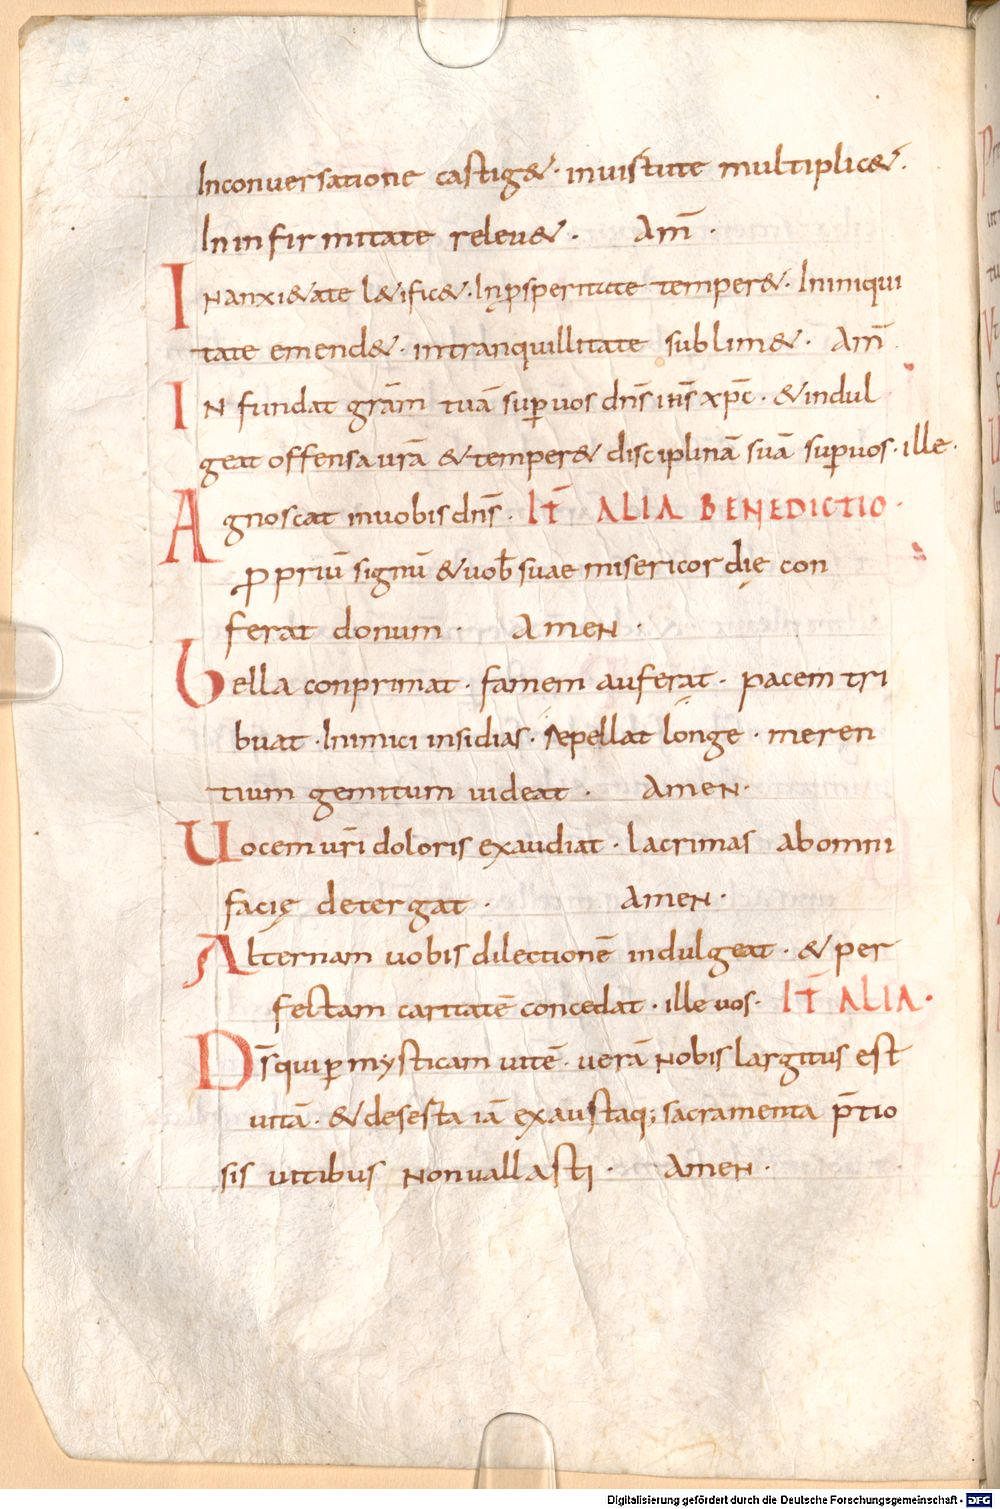 Inconuersatione castig&· inuisitate multiplic&·
Ininfirmitate releu&· Am̄·
INanxi&ate l&ific&· Inꝓsperitate temper&· Ininiqui
tate emend&· intranquillitate sublim&· Am̄
IN fundat grām tuā suꝑuos dn̄s ih̄s xp̄c· &indul
geat offensa urā &temper& disciplinā suā suꝑuos· ille·
Agnoscat inuobis dn̄s· IT̄ ALIA BENEDICTIO·
ꝓpriū signū &uob̄ suae misericordię con
ferat donum· AmeN·
Bella conprimat· famem auferat· pacem tri
buat· Inimici insidias· repellat longe· meren
tium gemitum uideat· AmeN·
Uocem ur̄i doloris exaudiat· lacrimas abomni
facię detergat· AmeN·
Alternam uobis dilectionē indulgeat· & per
fectam caritatē concedat· ille uos· IT̄ ALIA·
Ds̄ quiꝑ mysticam uitē· uerā Nobis largitus est
uitā· & desesta iā exaustaq; sacramenta p̄tio
sis uitibus Nonuallasti· AmeN·
Digitalisierung gefördert durch die Deutsche Forschungsgemeinschaft - DFG